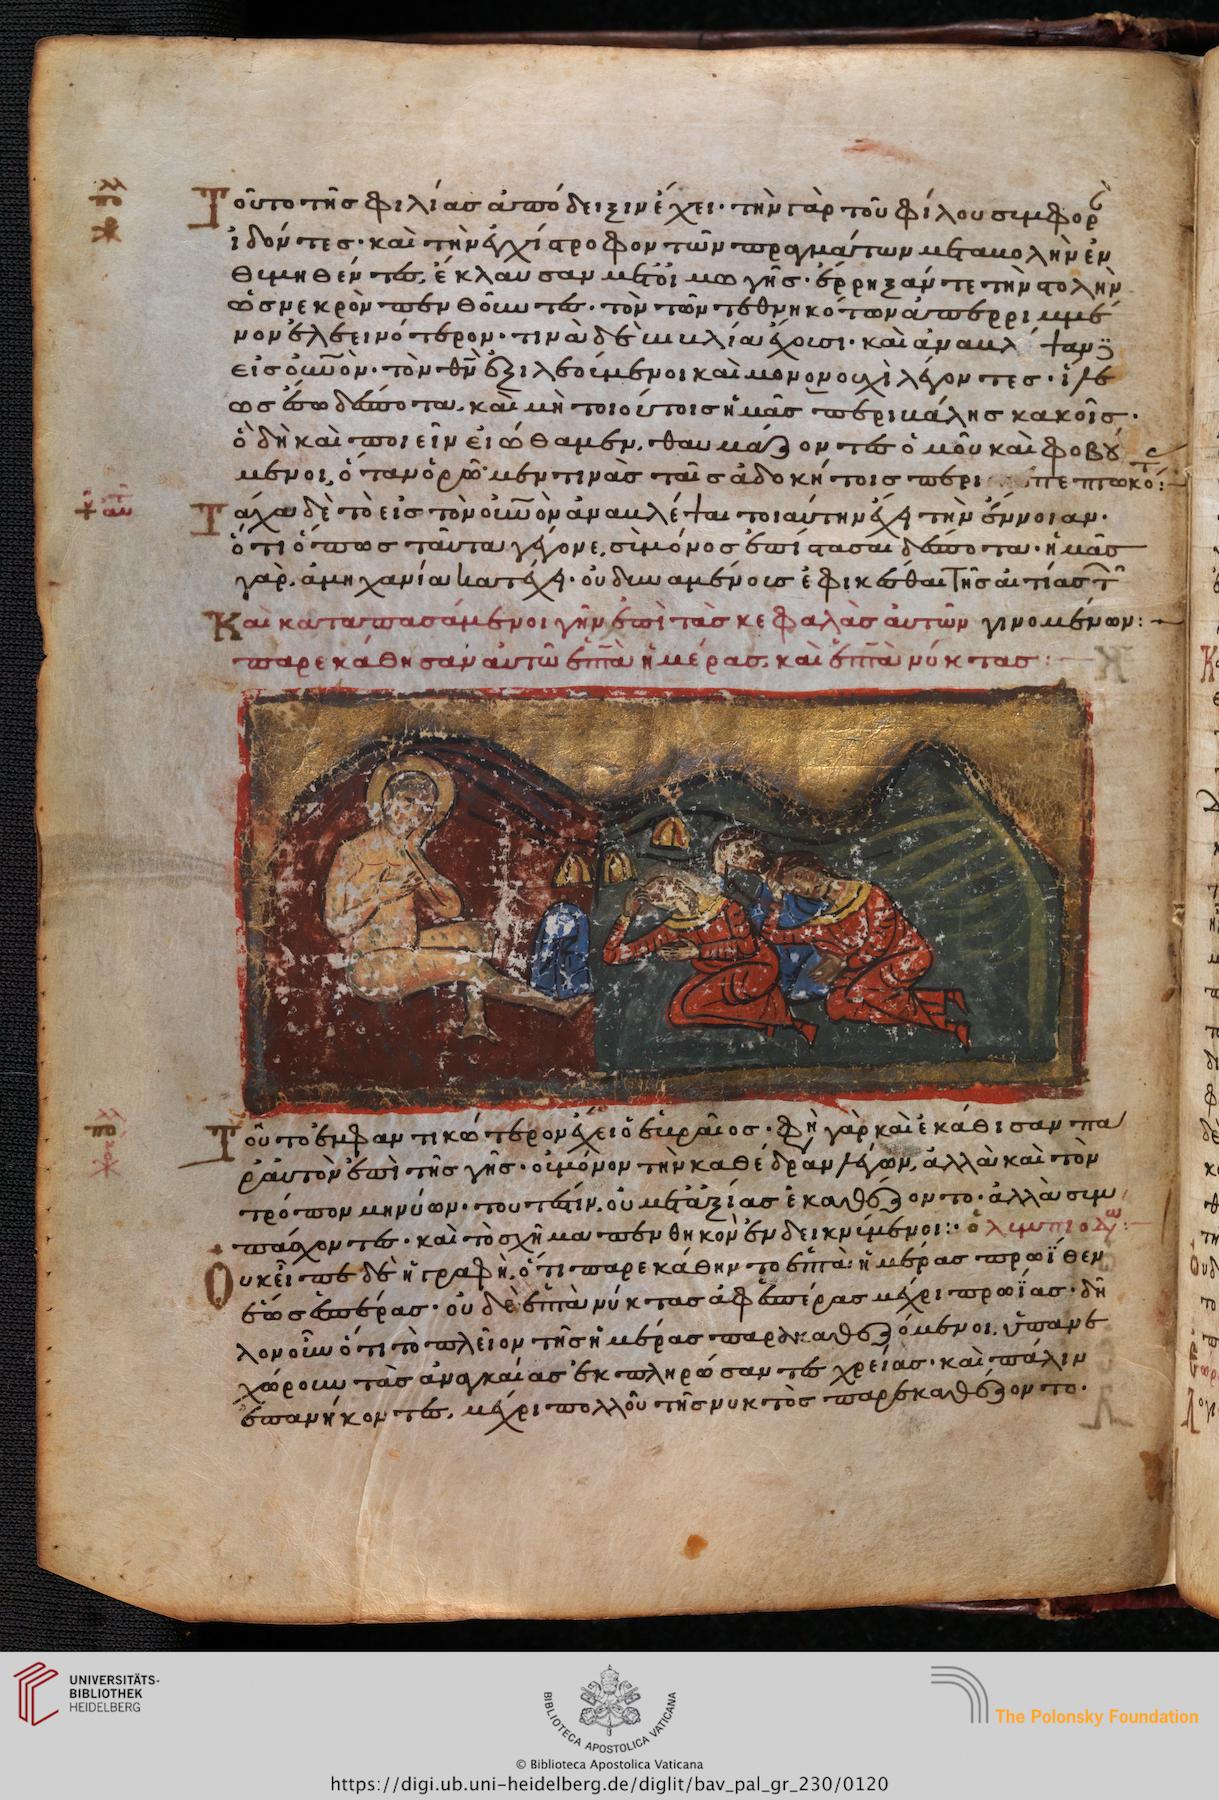 Τοῦτο τῆς φιλίας ἀπόδειξιν ἔχει· τὴν γὰρ τοῦ φίλου συμφορ
ἰδόντες· καὶ τὴν ἀγχίστροφον τῶν πραγμάτων μεταβολὴν ἐν
θυμηθέντες, ἔκλαυσαν μετ οἰμωγῆς· ἐρρηξάν τε τὴν στολὴν
ὡς νεκρὸν πενθοῦντες· τὸν τῶν τεθνηκότων ἀπερριμμέ
νον ἐλεεινότερον· τινὰ δὲ βιβλία ἔχουσι· καὶ ἀναβλέψαντ
εἰς οὐνὸν· τὸν θν ἐξιλεούμενοι καὶ μονονουχὶ λέγοντες· ἵλε
ως ἔσο δέσποτα, καὶ μὴ τοιούτοις ἡμᾶς περιβάλῃς κακοῖς·
ὃ δὴ καὶ ποιεῖν εἰώθαμεν, θαυμάζοντες ὁμοῦ καὶ φοβού
μενοι, ὅταν ὁρῶμέν τινὰς ταῖς ἀδοκήτοις περι πεπτωκό:
Τάχα δὲ τὸ εἰς τὸν οὐνὸν ἀναβλέψαι τοιαύτην ἔχει τὴν ἔννοιαν·
ὅτι ὅπως ταῦτα γέγονε, σὺ μόνος ἐπίστασαι δέσποτα· ἡμᾶς
γὰρ, ἀμηχανία κατέχει· οὐ δυναμένοις ἐφικέσθαι τῆς αἰτίας τ
Καὶ καταπασάμενοι γῆν ἐπὶ τὰς κεφαλὰς αὐτῶν γινομένων:
παρεκάθησαν αὐτῶ ἑπτὰ ἡμέρας, καὶ ἑπτὰ νύκτας:
Τοῦτο ἐμφαντικώτερον ἔχει ὁ ἑβραῖος· φη γὰρ καὶ ἐκάθισαν πα
ρ αὐτὸν ἐπὶ τῆς γῆς· οὐ μόνον τὴν καθέδραν λέγων, ἀλλὰ καὶ τὸν
τρόπον μηνύων· τουτέστιν, οὐ μετ ἀξίας ἐκαθέζοντο· ἀλλὰ συμ
πάσχοντες· καὶ τὸ σχῆμα πενθηκὸν ἐνδεικνύμενοι:· ὀλυμπιοδω:
Οὐκ εἶπε δὲ ἡ γραφὴ, ὅτι παρεκάθηντο ἑπτὰ ἡμέρας πρωΐθεν
ἕως ἑσπέρας· οὐδὲ ἑπτὰ νύκτας ἀφ ἑσπέρας μέχρι πρωΐας· δῆ
λον οὖν ὅτι τὸ πλεῖον τῆς ἡμέρας παρακαθεζόμενοι, ὑπανε
χώρουν τὰς ἀναγκαίας ἐκπληρώσαντες χρείας· καὶ πάλιν
ἐπανήκοντες, μέχρι πολλοῦ τῆς νυκτὸς παρεκαθέζοντο.
UNIVERSITÄTS-
BIBLIOTHEK
HEIDELBERG
BIBLIOTECA APOSTOLICA VATICANA
The Polonsky Foundation
© Biblioteca Apostolica Vaticana
https://digi.ub.uni-heidelberg.de/diglit/bav_pal_gr_230/0120